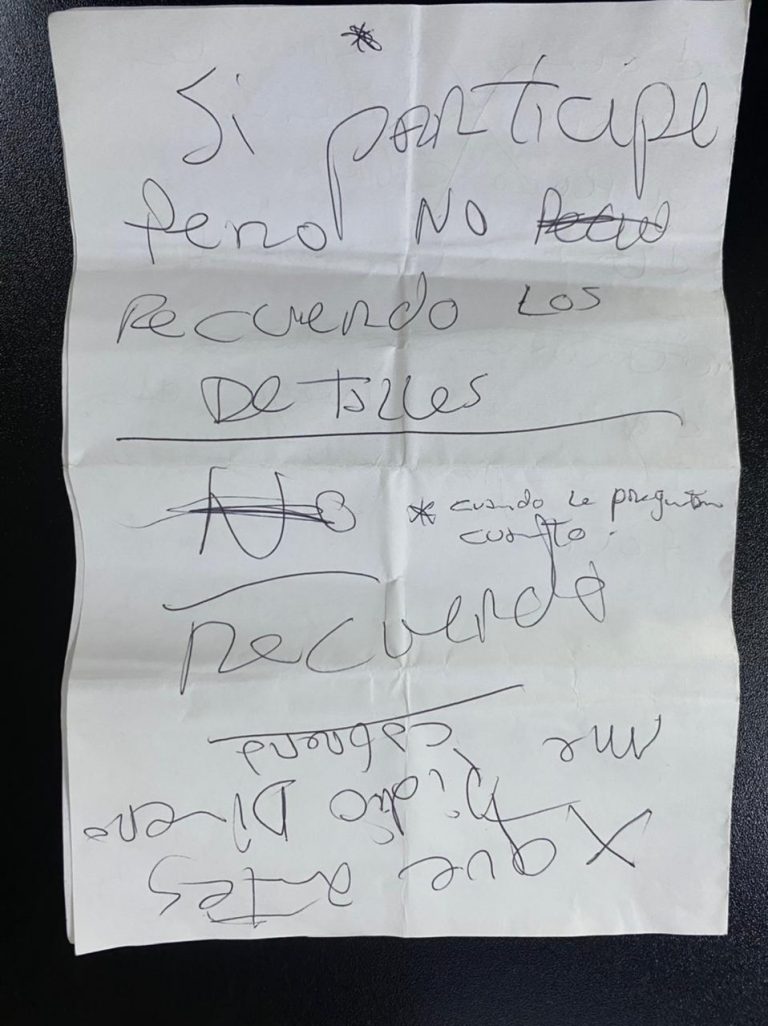 *
Si participe
Pero NO Recue
Recuerdo Los
Detalles
No * cuando le preguntan
cuanto.
recuerdo
X que antes
Pidio Dinero
me cabrera